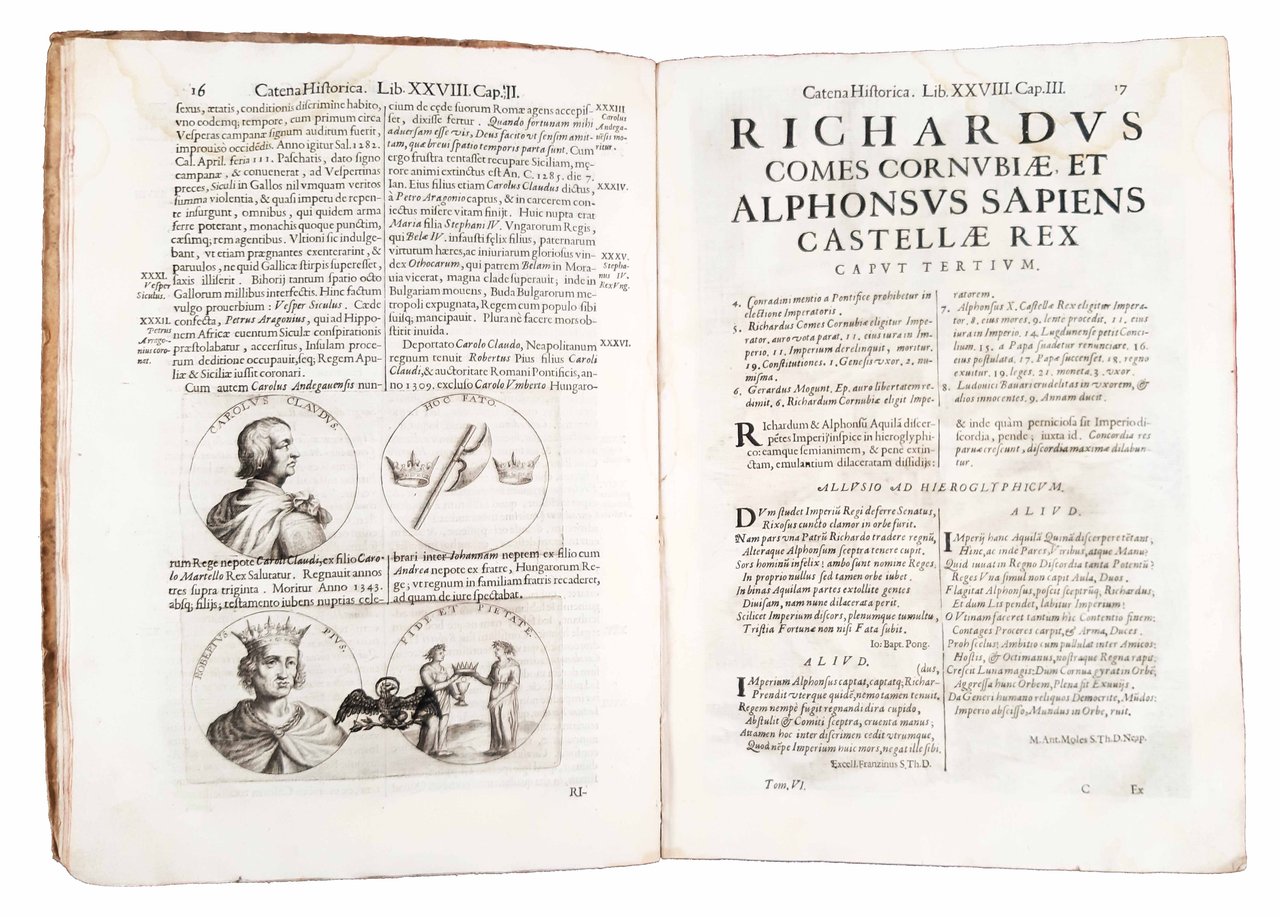 16 Catena Historica. Lib. XXVIII. Cap. II.
sexus, ætatis, conditionis discrimine habito,
vno eodemq; tempore, cum primum circa
Vesperas campanæ signum auditum fuerit,
improuisò occidēdi. Anno igitur Sal. 1282.
Cal. April. feria III. Paschatis, dato signo
campanæ, & conuenerat, ad Vespertinas
preces, Siculi in Gallos nil vmquam veritos
summa violentia, & quasi impetu de repen-
te insurgunt, omnibus, qui quidem arma
ferre poterant, monachis quoque punctim,
cæsimq; rem agentibus. Vltioni sic indulge-
bant, vt etiam prægnantes exenterarint, &
paruulos, ne quid Gallicæ stirpis superesset,
saxis illiserit. Bihorij tantum spatio octo
Gallorum millibus interfectis. Hinc factum
vulgo prouerbium: Vesper Siculus. Cæde
confecta, Petrus Aragonius, qui ad Hippo-
nem Africæ euentum Siculæ conspirationis
præstolabatur, accersitus, Insulam proce-
rum deditione occupauit, seq; Regem Apu-
liæ & Siciliæ iussit coronari.
Cum autem Carolus Andegauensis nun-
XXXI.
Vesper
Siculus.
XXXII.
Petrus
Arago-
nius coro-
nat.
cium de cęde suorum Romæ agens accepis-
set, dixisse fertur. Quando fortunam mihi
aduersam esse vis, Deus facito vt sensim amit-
tam, quæ breui spatio temporis parta sunt. Cum
ergo frustra tentasset recupare Siciliam, mę-
rore animi extinctus est An. C. 1285. die 7.
Ian. Eius filius etiam Carolus Claudus dictus,
à Petro Aragonio captus, & in carcerem con-
iectus misere vitam finijt. Huic nupta erat
Maria filia Stephani IV. Vngarorum Regis,
qui Belæ IV. infausti fęlix filius, paternarum
virtutum hæres, ac iniuriarum gloriosus vin-
dex Othocarum, qui patrem Belam in Mora-
uia vicerat, magna clade superauit; inde in
Bulgariam mouens, Buda Bulgarorum me-
tropoli expugnata, Regem cum populo sibi
suisq; mancipauit. Plura nè facere mors ob-
stitit inuida.
Deportato Carolo Claudo, Neapolitanum
regnum tenuit Robertus Pius filius Caroli
Claudi, & auctoritate Romani Pontificis, an-
no 1309. excluso Carolo Vmberto Hungaro-
XXXIII
Carolus
Andega-
uēsis mo-
ritur.
XXXIV.
XXXV.
Stepha-
nus IV.
Rex Vng.
XXXVI.
CAROLVS CLAVDVS.
HOC FATO.
rum Rege nepote Caroli Claudi, ex filio Caro-
lo Martello Rex Salutatur. Regnauit annos
tres supra triginta. Moritur Anno 1343.
absq; filijs; testamento iubens nuptias cele-
brari inter Iohannam neptem ex filio cum
Andrea nepote ex fratre, Hungarorum Re-
ge; vt regnum in familiam fratris recaderet,
ad quam de iure spectabat.
ROBERTVS PIVS.
FIDE ET PIETATE.
RI-
Catena Historica. Lib. XXVIII. Cap. III. 17
RICHARDVS
COMES CORNVBIÆ, ET
ALPHONSVS SAPIENS
CASTELLÆ REX
CAPVT TERTIVM.
4. Conradini mentio a Pontifice prohibetur in
electione Imperatoris.
5. Richardus Comes Cornubiæ eligitur Impe-
rator. auro vota parat. 11. eius iura in Im-
perio. 11. Imperium derelinquit, moritur.
19. Constitutiones. 1. Genesis vxor. 2. nu-
misma.
6. Gerardus Mogunt. Ep. auro libertatem re-
dimit. 6. Richardum Cornubiæ eligit Impe-
ratorem.
7. Alphonsus X. Castellæ Rex eligitur Impera-
tor. 8. eius mores. 9. lente procedit. 11. eius
iura in Imperio. 14. Lugdunense petit Conci-
lium. 15. a Papa suadetur renunciare. 16.
eius postulata. 17. Papæ succenset. 18. regno
exuitur. 19. leges. 21. moneta. 3. vxor.
8. Ludouici Bauari crudelitas in vxorem, &
alios innocentes. 9. Annam ducit.
RIchardum & Alphonsū Aquilā discer-
pētes Imperij inspice in hieroglyphi-
co: eamque semianimem, & penè extin-
ctam, emulantium dilaceratam dissidijs:
& inde quàm perniciosa sit Imperio di-
scordia, pende; iuxta id. Concordia res
paruæ crescunt, discordia maximæ dilabun-
tur.
ALLVSIO AD HIEROGLYPHICVM.
DVm studet Imperiū Regi deferre Senatus,
Rixosus cuncto clamor in orbe furit.
Nam pars vna Patrū Richardo tradere regnū,
Alteraque Alphonsum sceptra tenere cupit.
Sors hominū infelix! ambo sunt nomine Reges,
In proprio nullus sed tamen orbe iubet.
In binas Aquilam partes extollite gentes
Diuisam, nam nunc dilacerata perit.
Scilicet Imperium discors, plenumque tumultu,
Tristia Fortunæ non nisi Fata subit.
Io: Bapt. Pong.
ALIVD.
(dus,
IMperium Alphonsus captat, captatq; Richar-
Prendit vterque quidē, nemo tamen tenuit.
Regem nempè fugit regnandi dira cupido,
Abstulit & Comiti sceptra, cruenta manus;
Attamen hoc inter discrimen cedit vtrumque,
Quod nēpe Imperium huic mors, negat ille sibi.
Excell. Franzinus S. Th. D.
ALIVD.
IMperij hanc Aquilā Quinā discerpere tētant,
Hinc, ac inde Pares, Viribus, atque Manu:
Quid iuuat in Regno Discordia tanta Potentū?
Reges Vna simul non capit Aula, Duos.
Flagitat Alphonsus, poscit sceptrūq, Richardus;
Et dum Lis pendet, labitur Imperium!
O Vtinam faceret tantum hìc Contentio finem:
Contages Proceres carpit, & Arma, Duces.
Proh scelus! Ambitio cum pullulat inter Amicos:
Hostis, & Octimanus, nostraque Regna rapis:
Crescit Luna magis: Dum Cornua gyrat in Orbē,
Aggressa hunc Orbem, Plena sit Exuuijs.
Da Generi humano reliquos Democrite, Mūdos:
Imperio abscisso, Mundus in Orbe, ruit.
M. Ant. Moles S. Th. D. Neap.
Tom. VI. C Ex